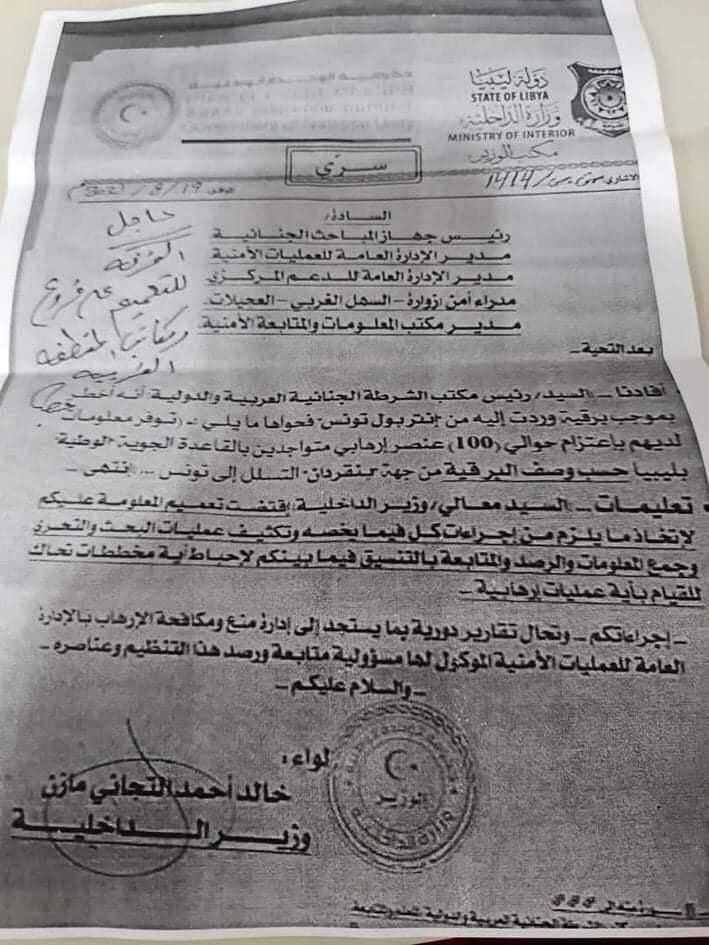 دولة ليبيا
STATE OF LIBYA
وزارة الداخلية
MINISTRY OF INTERIOR
مكتب الوزير
سري
السادة/
رئيس جهاز المباحث الجنائية
مدير الإدارة العامة للعمليات الأمنية
مدير الإدارة العامة للدعم المركزي
مدراء أمن /زوارة - السهل الغربي - العجيلات.
مدير مكتب المعلومات والمتابعة الأمنية.
عاجل
للتعميم على فروع
بعد التحية ..
أفادنا .. السيد/ رئيس مكتب الشرطة الجنائية العربية والدولية: أنه أخطر
بموجب برقية وردت إليه من "إنتربول تونس" فحواها ما يلي :- (توفر معلومات
لديهم بإعتزام حوالي (100) عنصر إرهابي متواجدين بالقاعدة الجوية "الوطية"
بليبيا حسب وصف البرقية من جهة "بنقردان" التسلل إلى تونس ... إنتهى ..
تعليمات .. السيد معالي/ وزير الداخلية: إقتضت تعميم المعلومة عليكم
لإتخاذ ما يلزم من إجراءات كل فيما يخصه وتكثيف عمليات البحث والتحري
وجمع المعلومات والرصد والمتابعة بالتنسيق فيما بينكم لإحباط أية مخططات تحاك
للقيام بأية عمليات إرهابية ..
.. إجراءاتكم .. وتحال تقارير دورية بما يستجد إلى إدارة منع ومكافحة الإرهاب بالإدارة
العامة للعمليات الأمنية الموكول لها مسؤولية متابعة ورصد هذا التنظيم وعناصره ..
.. والسلام عليكم ..
لواء:
خالد أحمد التجاني مازن
وزير الداخلية
الوزير
وزارة الداخلية